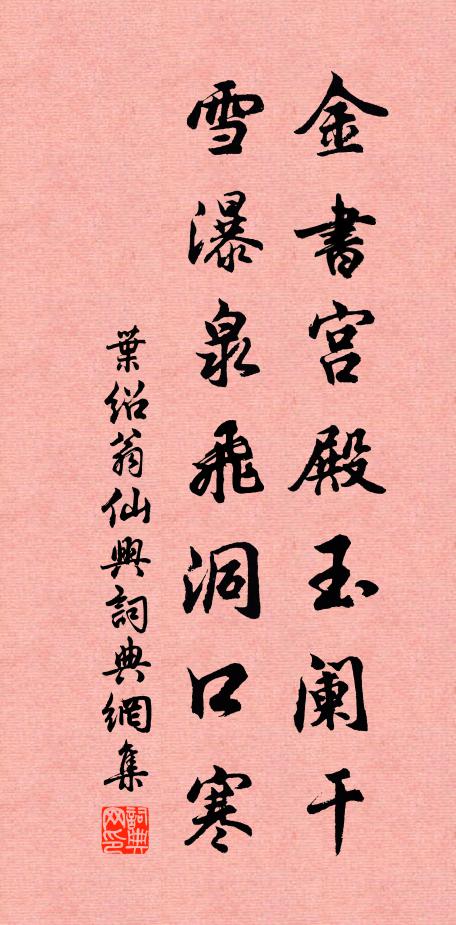 金書宮殿玉阑干
雪瀑泉飛洞口寒
葉绍翁仙興詞典網集
詞典网印